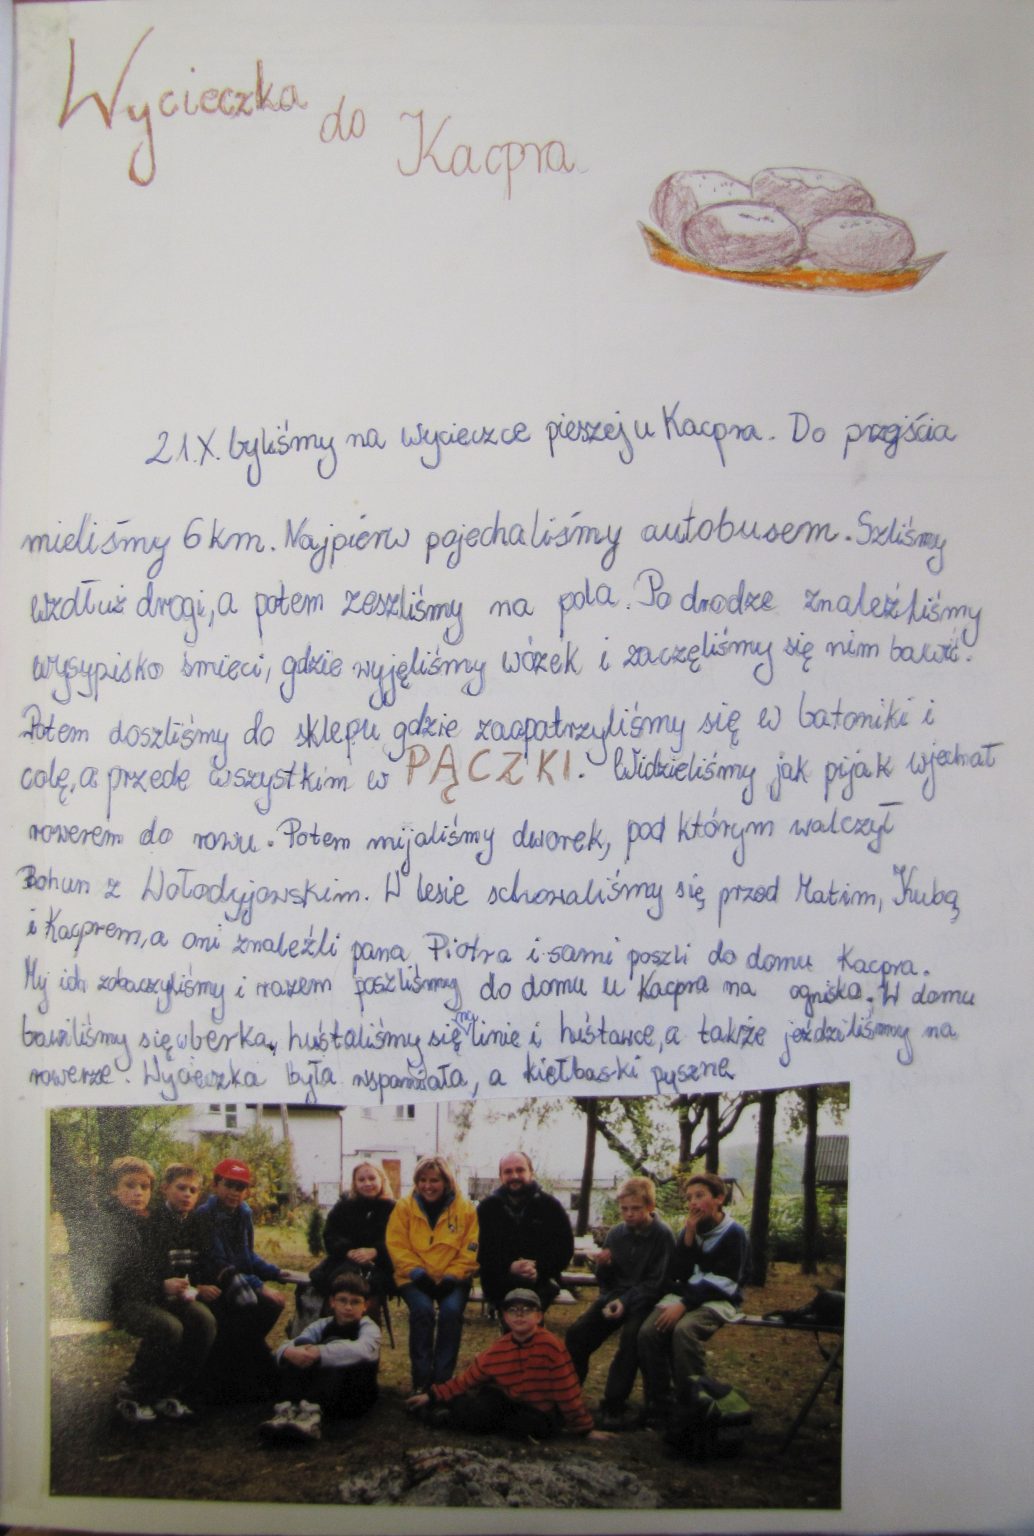 Wycieczka do Kacpra
21.X. byliśmy na wycieczce pieszej u Kacpra. Do przejścia
mieliśmy 6 km. Najpierw pojechaliśmy autobusem. Szliśmy
wzdłuż drogi, a potem zeszliśmy na pola. Po drodze znaleźliśmy
wysypisko śmieci, gdzie wyjęliśmy wózek i zaczęliśmy się nim bawić.
Potem doszliśmy do sklepu gdzie zaopatrzyliśmy się w batoniki i
colę, a przede wszystkim w PĄCZKI. Widzieliśmy jak pijak wjechał
rowerem do rowu. Potem mijaliśmy dworek, pod którym walczył
Bohun z Wołodyjowskim. W lesie schowaliśmy się przed Matim, Kubą
i Kacprem, a oni znaleźli pana Piotra i sami poszli do domu Kacpra.
My ich zobaczyliśmy i razem poszliśmy do domu u Kacpra na ogniska. W domu
bawiliśmy się w berka, huśtaliśmy się na linie i huśtawce, a także jeździliśmy na
rowerze. Wycieczka była wspaniała, a kiełbaski pyszne